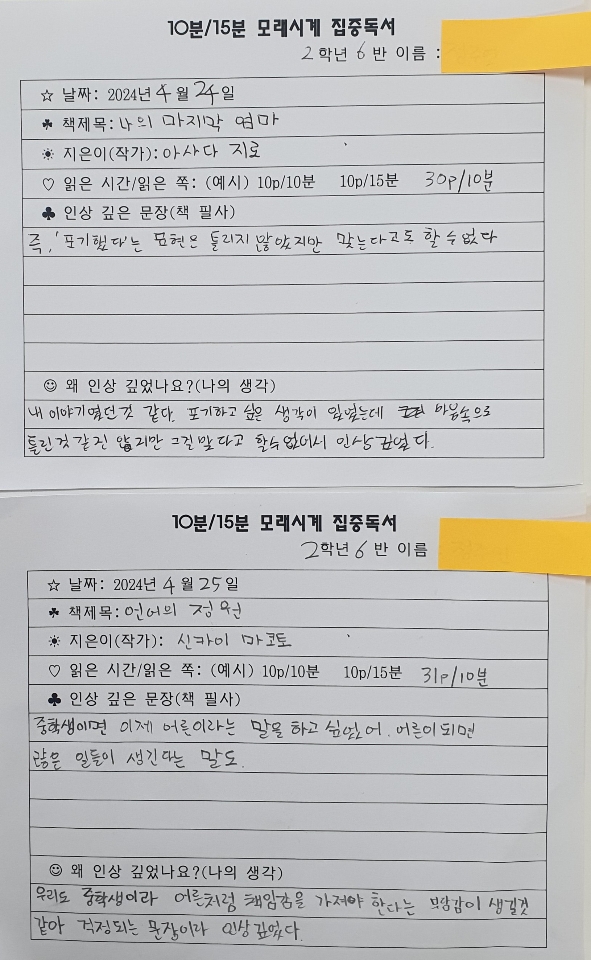 10분/15분 모래시계 집중독서
2학년 6반 이름 :
☆ 날짜: 2024년 4월 24일
♣ 책제목: 나의 마지막 엄마
☀ 지은이(작가): 아사다 지로
♡ 읽은 시간/읽은 쪽: (예시) 10p/10분 10p/15분 30p/10분
♣ 인상 깊은 문장(책 필사)
즉, '포기했다'는 표현은 틀리지 않았지만 맞는다고도 할 수 없다
☺ 왜 인상 깊었나요?(나의 생각)
내 이야기였던 것 같다. 포기하고 싶은 생각이 있었는데 마음속으로
틀린것 같진 않지만 그걸 맞다고 할수 없어서 인상 깊었다.
10분/15분 모래시계 집중독서
2학년 6반 이름
☆ 날짜: 2024년 4월 25일
♣ 책제목: 언어의 정원
☀ 지은이(작가): 신카이 마코토
♡ 읽은 시간/읽은 쪽: (예시) 10p/10분 10p/15분 31p/10분
♣ 인상 깊은 문장(책 필사)
중학생이면 이제 어른이라는 말을 하고 싶었어. 어른이 되면
많은 일들이 생긴다는 말도.
☺ 왜 인상 깊었나요?(나의 생각)
우리도 중학생이라 어른처럼 책임감을 가져야 한다는 부담감이 생길것
같아 걱정되는 문장이라 인상 깊었다.